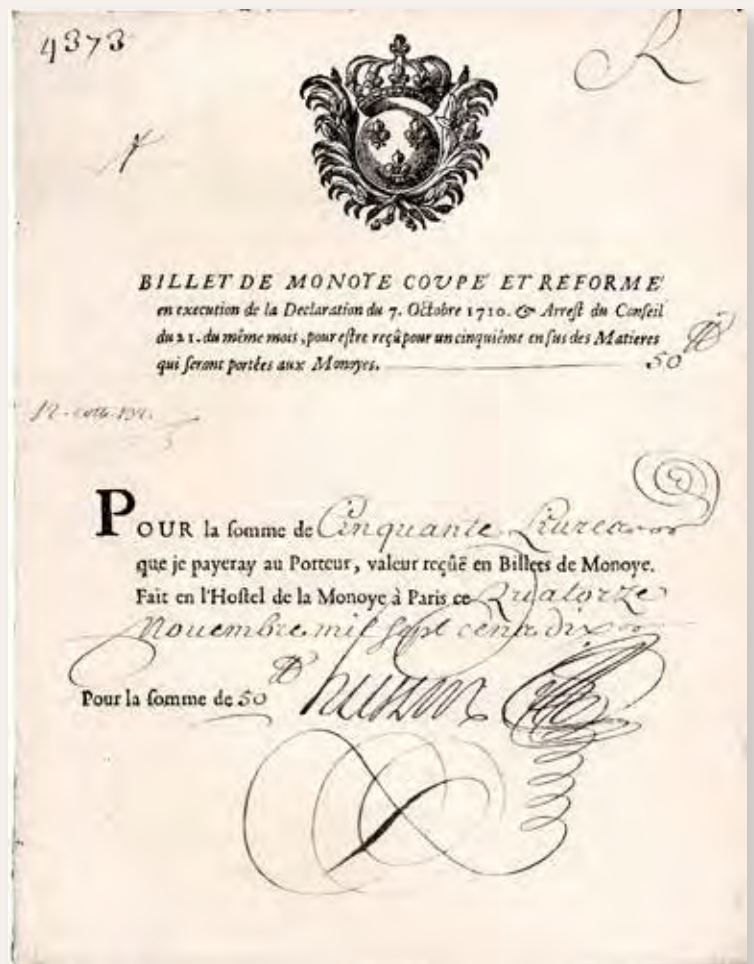 4373
R
BILLET DE MONOYE COUPÉ ET REFORMÉ
en execution de la Declaration du 7. Octobre 1710. & Arrest du Conseil
du 21. du même mois, pour estre reçû pour un cinquiéme en sus des Matieres
qui seront portées aux Monoyes. 50 ₶
POUR la somme de Cinquante Livres
que je payeray au Porteur, valeur reçûë en Billets de Monoye.
Fait en l'Hostel de la Monoye à Paris ce Quatorze
Nouembre mil sept cens dix
Pour la somme de 50 ₶